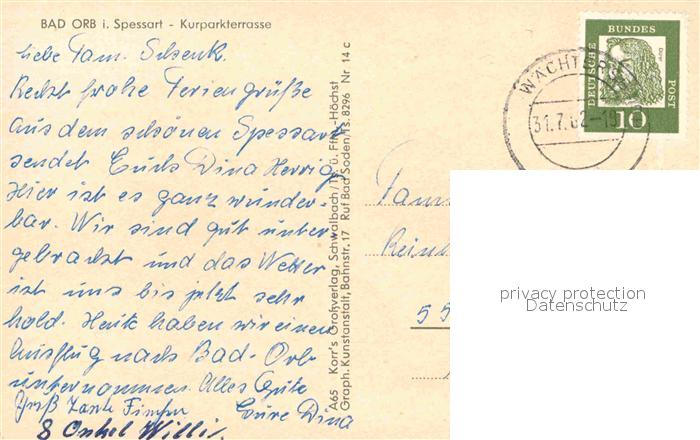 BAD ORB i. Spessart - Kurparkterrasse
liebe Fam. Schenk.
Recht frohe Feriengrüße
aus dem schönen Spessart
sendet Euch Dina Herrig
Hier ist es ganz wunder-
bar. Wir sind gut unter-
gebracht und das Wetter
ist uns bis jetzt sehr
hold. Heute haben wir einen
Ausflug nach Bad-Orb
unternommen. Alles Gute
Eure Dina
Gruß Tante
& Onkel Willi.
A65 Korr's Großverlag, Schwalbach/Ts. ü. Ffm.-Höchst
Graph. Kunstanstalt, Bahnstr. 17 Ruf Bad Soden/Ts. 8296 Nr 14 c
WÄCHTERS
31.7.62-19
DEUTSCHE
BUNDES
POST
Dürer
10
Fam
Rein
55
privacy protection
Datenschutz